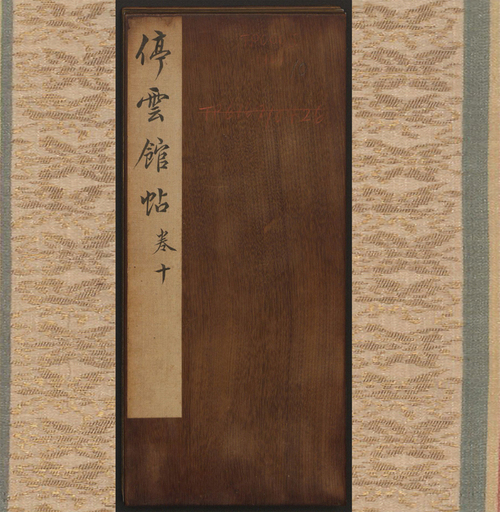 停雲館帖 卷十